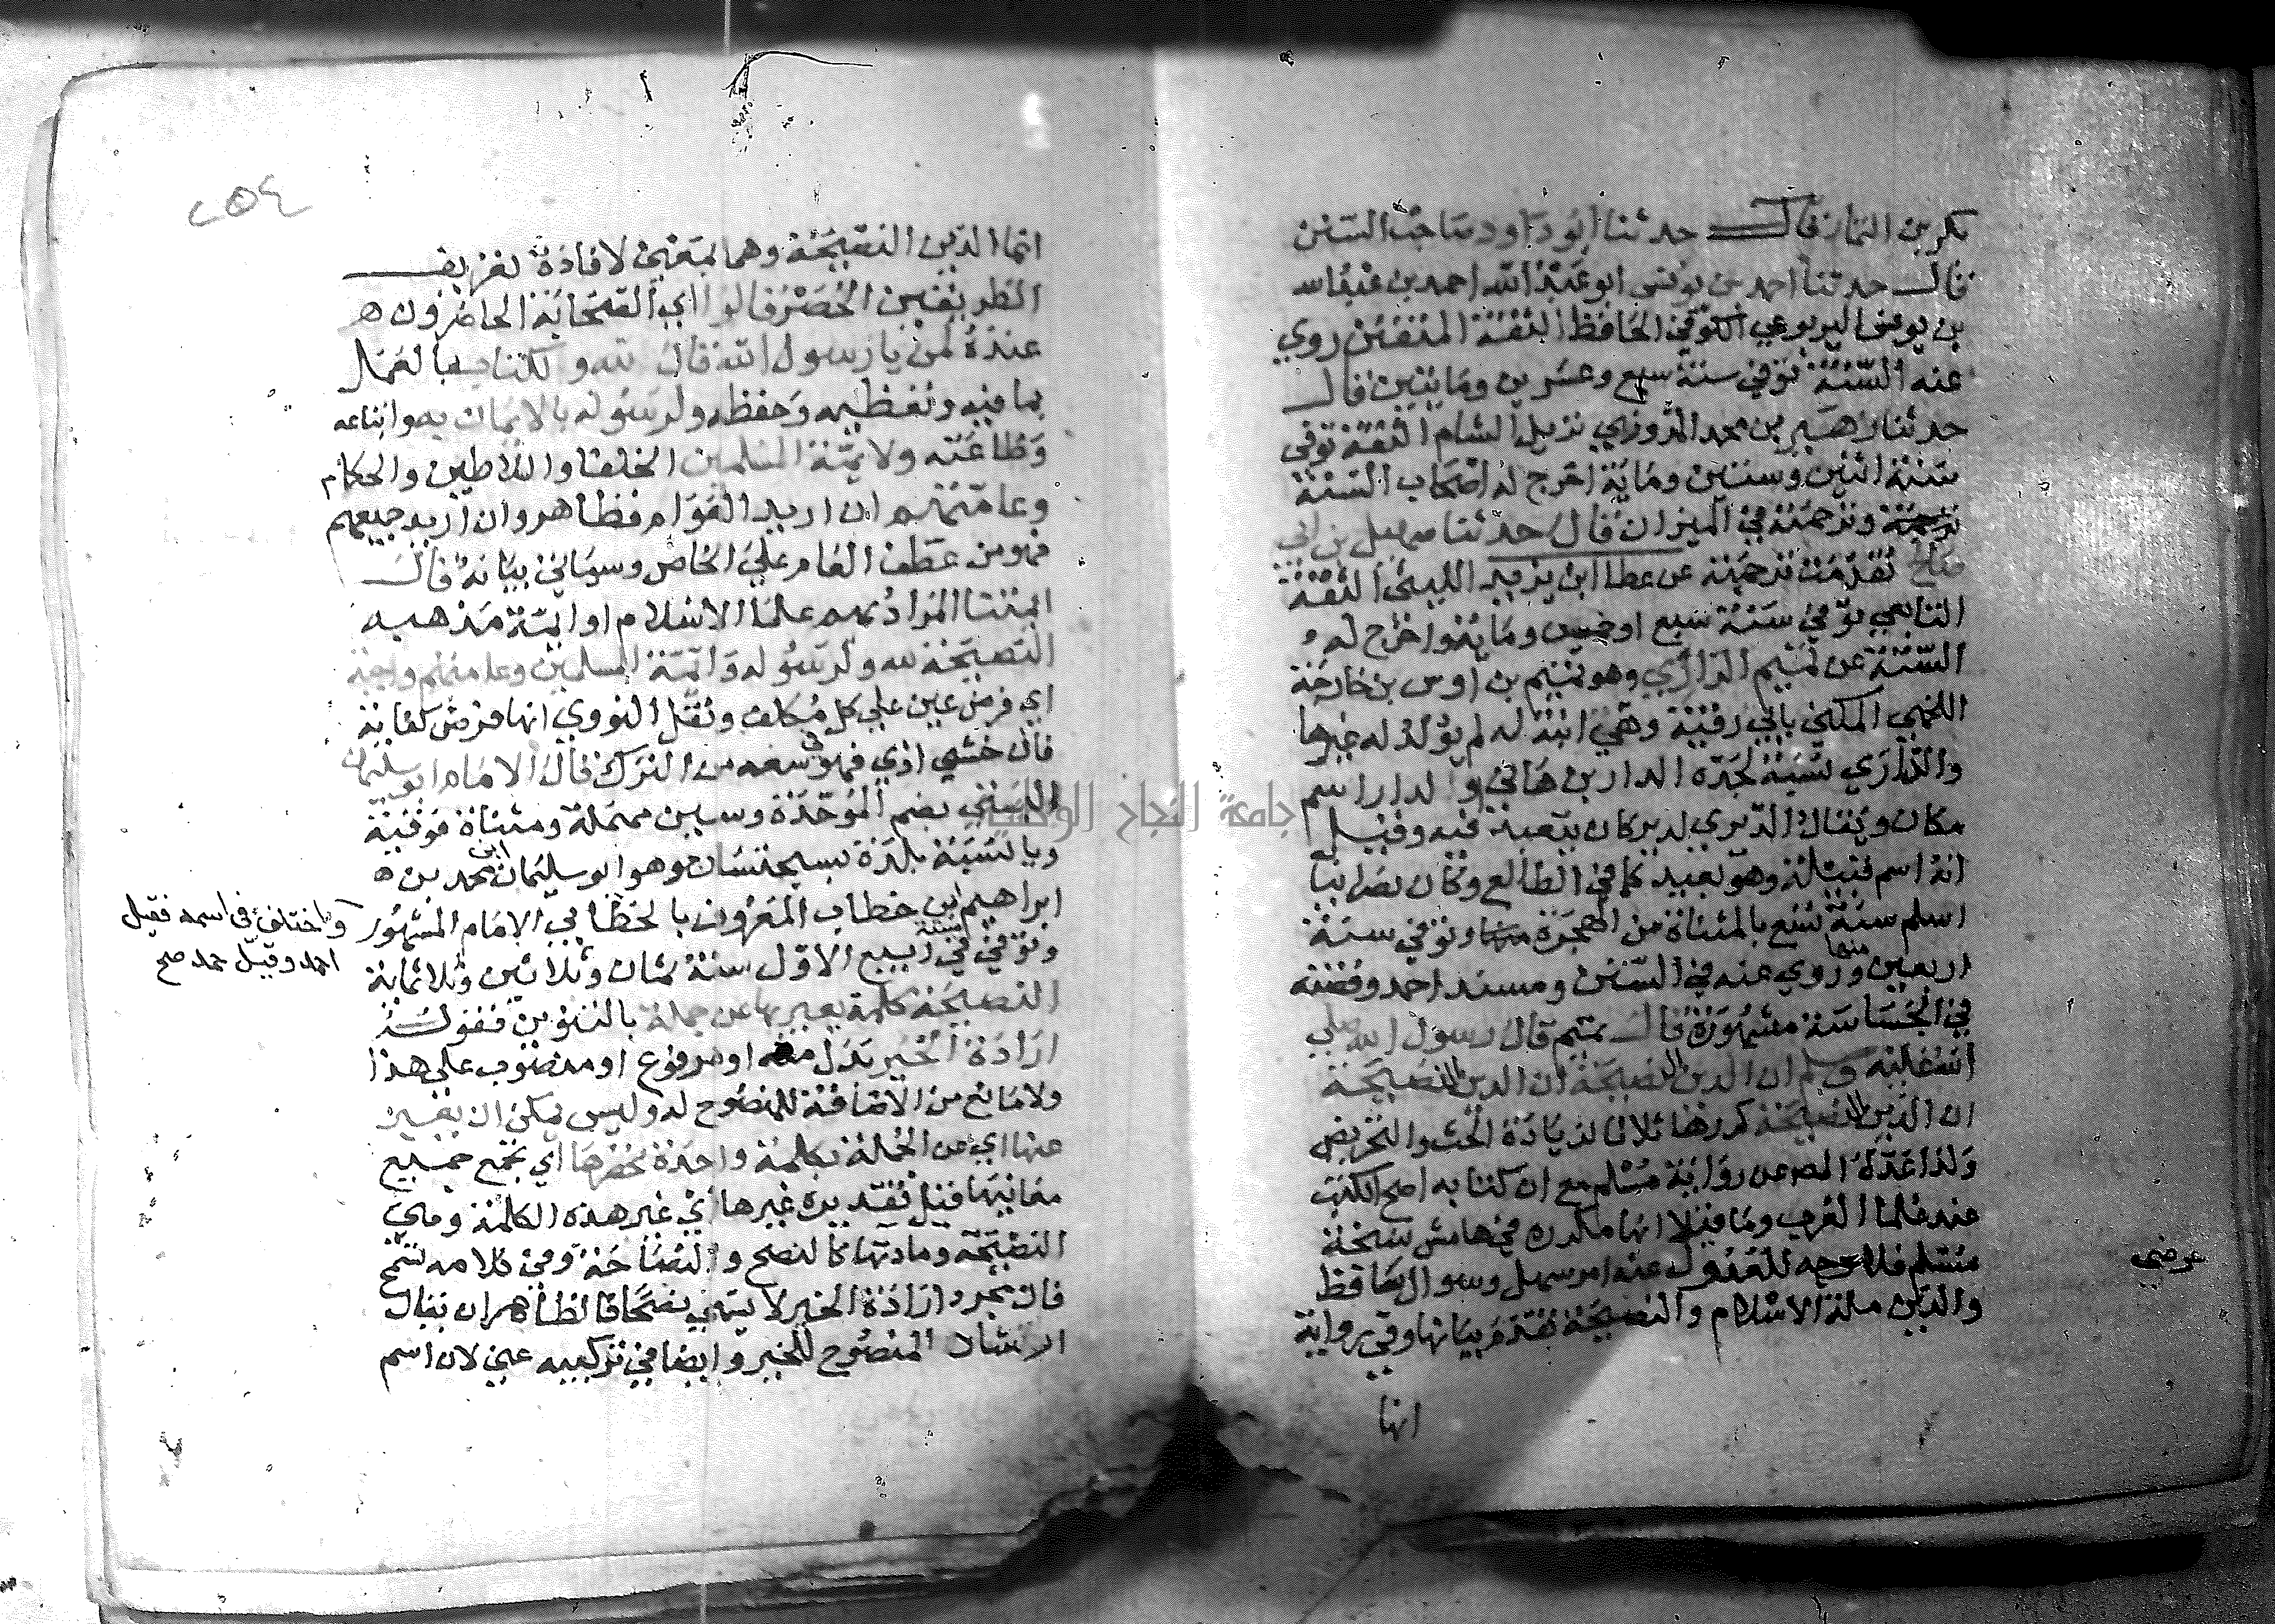 بكر بن التمار قال حدثنا ابو داود صاحب السنن
قال حدثنا احمد بن يونس ابو عبد الله احمد بن عبد الله
بن يونس اليربوعي الكوفي الحافظ الثقة المتقن روي
عنه الستة توفي سنة سبع وعشرين ومايتين قال
حدثنا زهير بن محمد المروزي نزيل الشام الثقة توفي
سنة اثنين وستين وماية اخرج له اصحاب الستة
وترجمته في الميزان قال حدثنا سهيل بن ابي
صالح تقدمت ترجمته عن عطا ابن يزيد الليثي الثقة
التابعي توفي سنة سبع او خمس وماية واخرج له
الستة عن تميم الداري وهو تميم بن اوس بن خارجة
اللخمي المكني بابي رقية وهي ابنة له لم يولد له غيرها
والداري نسبة لجده الدار بن هاني والدار اسم
مكان ويقال الديري لدير كان يتعبد فيه وقيل
انه اسم قبيلة وهو بعيد كما في الطالع وكان نصرانيا
اسلم سنة تسع بالمثناة من الهجرة وتوفي سنة
اربعين منها وروي عنه في السنن ومسند احمد وقصته
في الجساسة مشهورة قال تميم قال رسول الله صلي
الله عليه وسلم ان الدين النصيحة ان الدين النصيحة
ان الدين النصيحة كررها ثلاثا لزيادة الحث والتحريض
ولذا عدل المص عن رواية مسلم مع ان كتابه اصح الكتب
عند علما الغرب وما قيل انها مكررة في هامش نسخة
مسلم فلا وجه للعدول عنه امر سهل وسوال ساقط
عرضي
والدين ملة الاسلام والنصيحة تقدم بيانها وفي رواية
انما
٢٥٤
انما الدين النصيحة وهما بمعني لافادة تعريف
الطريفين الحصر قالوا اي الصحابة الحاضرون
عنده لمن يا رسول الله قال لله ولكتابه بالعمل
بما فيه وتعظيمه وحفظه ولرسوله بالايمان به واتباعه
وطاعته ولايمة المسلمين الخلفا والسلاطين والحكام
وعامتهم ان اريد العوام فظاهر وان اريد جميعهم
فهو من عطف العام علي الخاص وسياتي بيانه قال
ايمتنا المراد بهم علما الاسلام او ايمة مذهبه
النصيحة لله ولرسوله وايمة المسلمين وعامتهم واجبة
اي فرض عين علي كل مكلف ونقل النووي انها فرض كفاية
فان خشي اذي فهو في سعه من الترك قال الامام ابو سليمان
البستي بضم الموحدة وسين مهملة ومثناة فوقية
ويا نسبة بلدة بسجستان وهو ابو سليمان ابن محمد بن
ابراهيم ابن خطاب المعروف بالخطابي الامام المشهور
واختلف في اسمه فقيل
احمد وقيل حمد صح
وتوفي في ربيع الاول سنة ثمان وثلاثين وثلاثماية
النصيحة كلمة يعبر بها عن جملة بالتنوين فقوله
ارادة الخير بدل منه او مرفوع او منصوب علي هذا
ولا مانع من الاضافة للمنصوح له وليس يمكن ان يعبر
عنها اي عن الجملة بكلمة واحدة تحصرها اي تجمع جميع
معانيها قيل تقديره غيرها اي غير هذه الكلمة وهي
النصيحة ومادتها كالنصح والنصاحة وفي كلامه تسمح
فان مجرد ارادة الخير لا يسمي نصحا فالظاهر ان يقال
الارشاد المنصوح للخير وايضا في تركيبه عي لان اسم
جامعة النجاح الوطنية